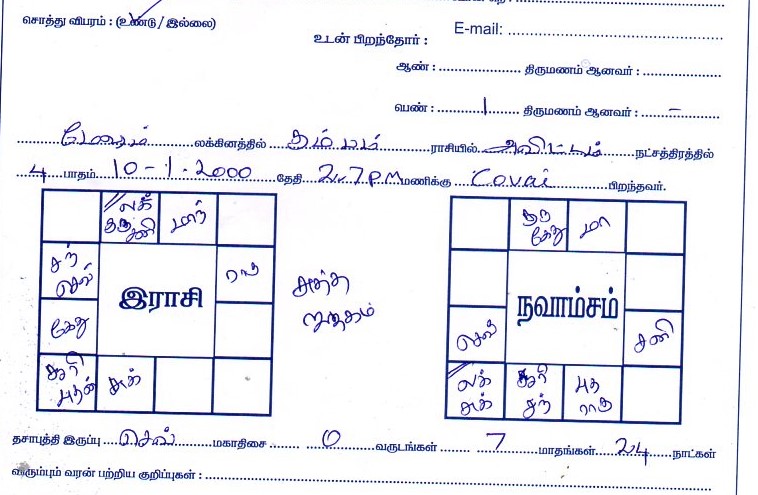 சொத்து விபரம் : (உண்டு / இல்லை)
உடன் பிறந்தோர் :
E-mail:
ஆண் : திருமணம் ஆனவர் :
பெண் : 1 திருமணம் ஆனவர் : –
மேஷம் லக்கினத்தில் கும்பம் ராசியில் அவிட்டம் நட்சத்திரத்தில்
4 பாதம் 10-1-2000 தேதி 2.7 PM மணிக்கு Covai பிறந்தவர்.
லக் குரு சனி
மாந்
சந் செவ்
ராகு
கேது
சூரி புதன்
சுக்
இராசி
சுத்த ஜாதகம்
குரு கேது
மா
செவ்
சனி
லக் சுக்
சூரி சந்
புத ராகு
நவாம்சம்
தசாபுத்தி இருப்பு செவ் மகாதிசை 0 வருடங்கள் 7 மாதங்கள் 24 நாட்கள்
விரும்பும் வரன் பற்றிய குறிப்புகள் :